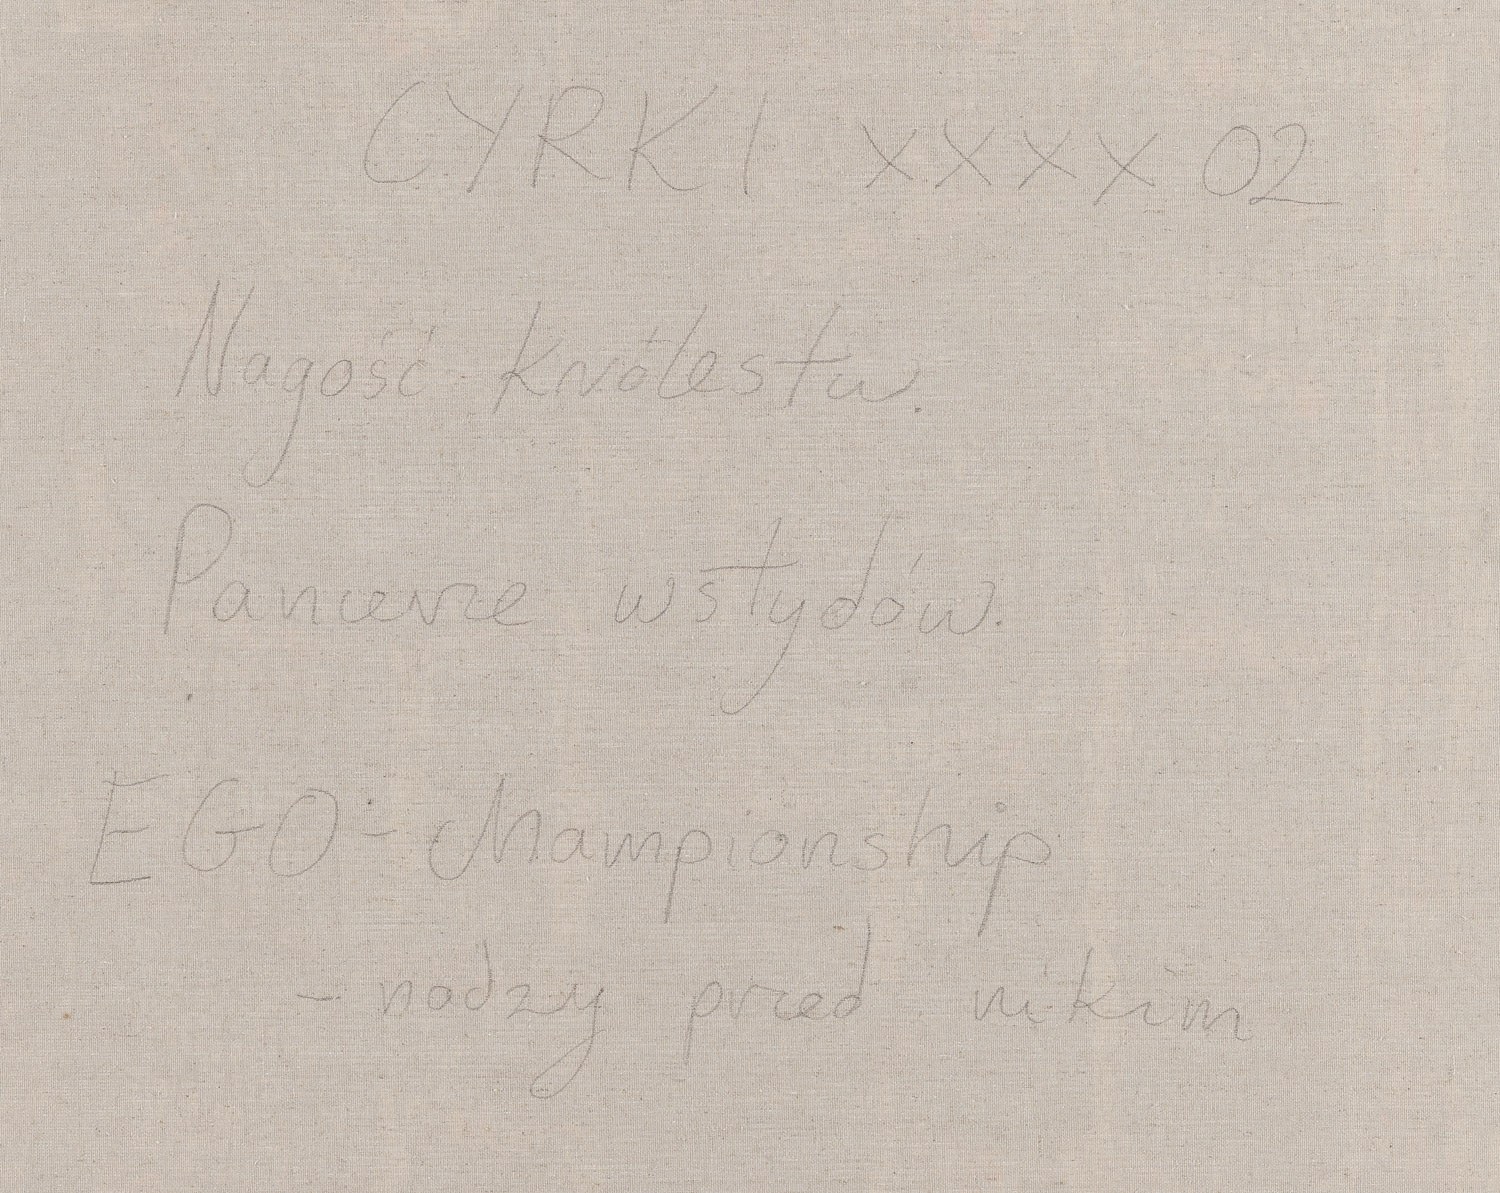 CYRKI xxxx 02
Nagość królestw.
Pancerze wstydów.
EGO - Mampionship
- nadzy przed nikim